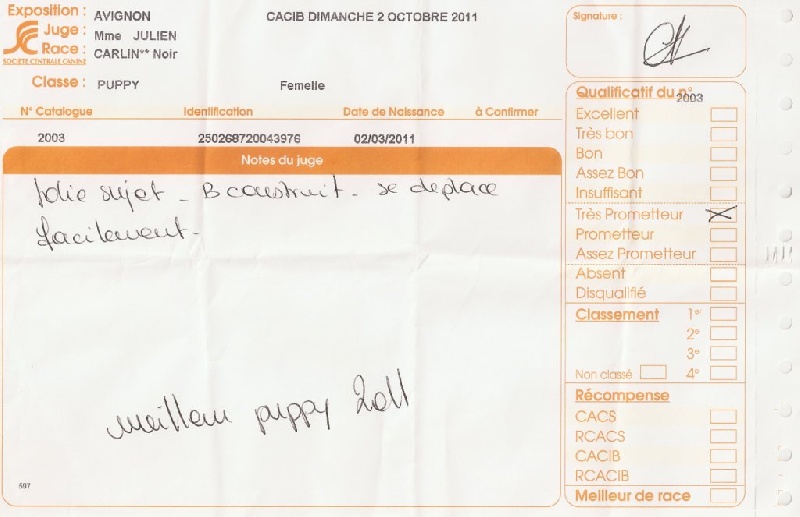 Exposition : AVIGNON
CACIB DIMANCHE 2 OCTOBRE 2011
Juge : Mme JULIEN
Race : CARLIN** Noir
SOCIÉTÉ CENTRALE CANINE
Classe : PUPPY
Femelle
N° Catalogue Identification Date de Naissance à Confirmer
2003 250268720043976 02/03/2011
Notes du juge
Jolie sujet - B construit - se deplace
facilement -
meilleur puppy 2011
597
Signature :
Qualificatif du n° 2003
Excellent
Très bon
Bon
Assez Bon
Insuffisant
Très Prometteur X
Prometteur
Assez Prometteur
Absent
Disqualifié
Classement 1er
2e
3e
Non classé 4e
Récompense
CACS
RCACS
CACIB
RCACIB
Meilleur de race